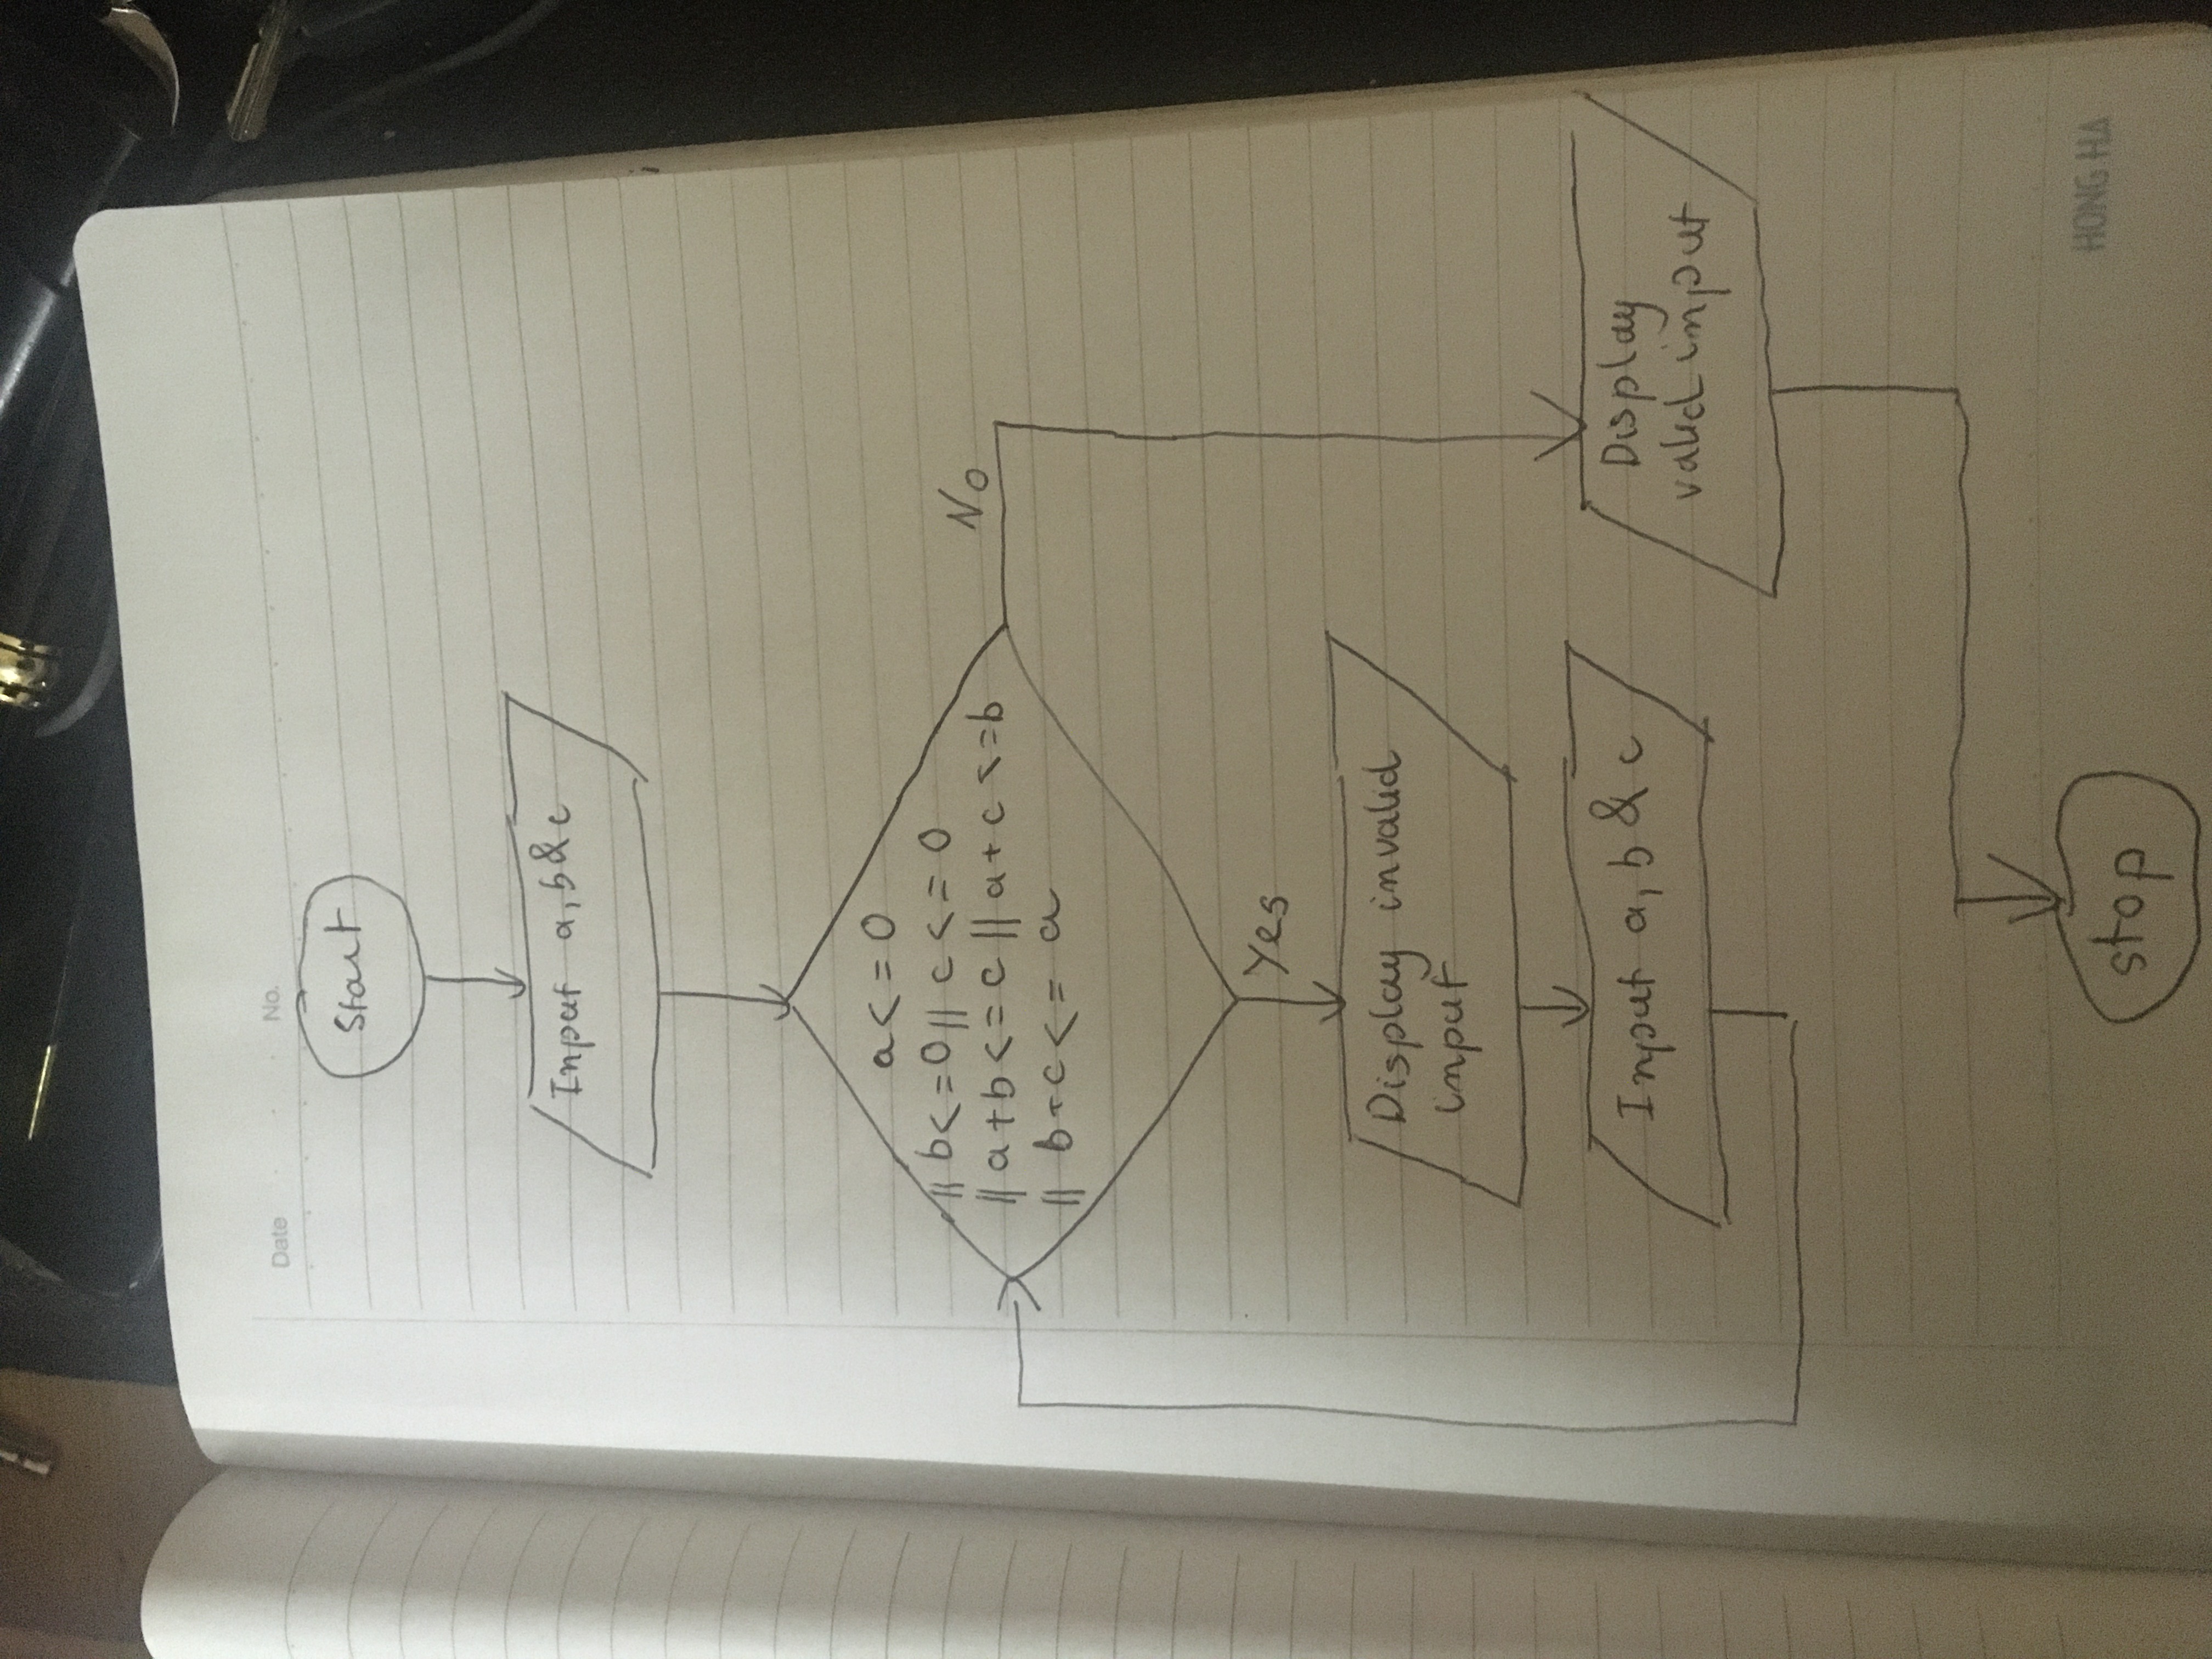 Date No.
Start
Input a, b & c
a < = 0
|| b < = 0 || c < = 0
|| a + b < = c || a + c < = b
|| b + c < = a
No
Yes
Display invalid
input
Input a, b & c
Display
valid input
stop
HONG HA